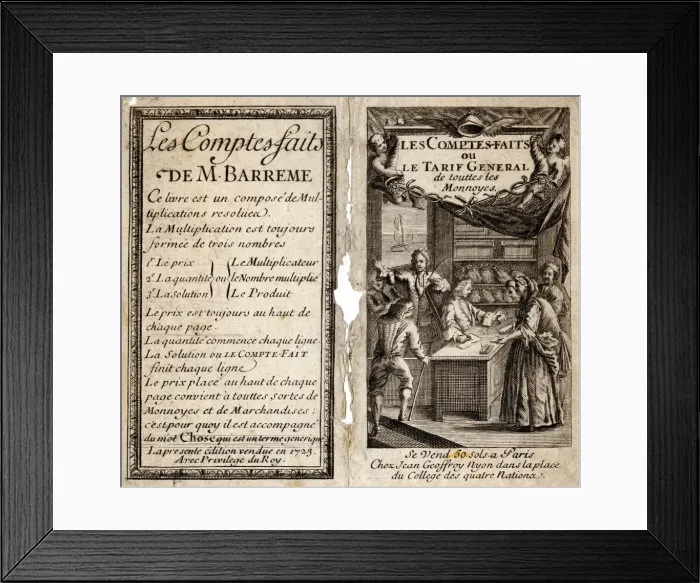 Les Comptes faits
DE M. BARREME
Ce livre est un composé de Mul-
tiplications resolües.
La Multiplication est toujours
formée de trois nombres
1.º Le prix
2.º La quantité
3.º La Solution
ou
Le Multiplicateur
le Nombre multiplié
Le Produit
Le prix est toujours au haut de
chaque page.
La quantité commence chaque ligne.
La Solution ou LE COMPTE-FAIT
finit chaque ligne
Le prix placé au haut de chaque
page convient a touttes sortes de
Monnoyes et de Marchandises;
c'est pour quoy il est accompagné
du mot Chose qui est un terme generique
La presente édition vendue en 1723.
Avec Privilege du Roy.
LES COMPTES-FAITS
OU
LE TARIF GENERAL
de touttes les
Monnoyes.
Se Vend 50 sols a Paris
Chez Jean Geoffroy Nyon dans la place
du College des quatre Nations.